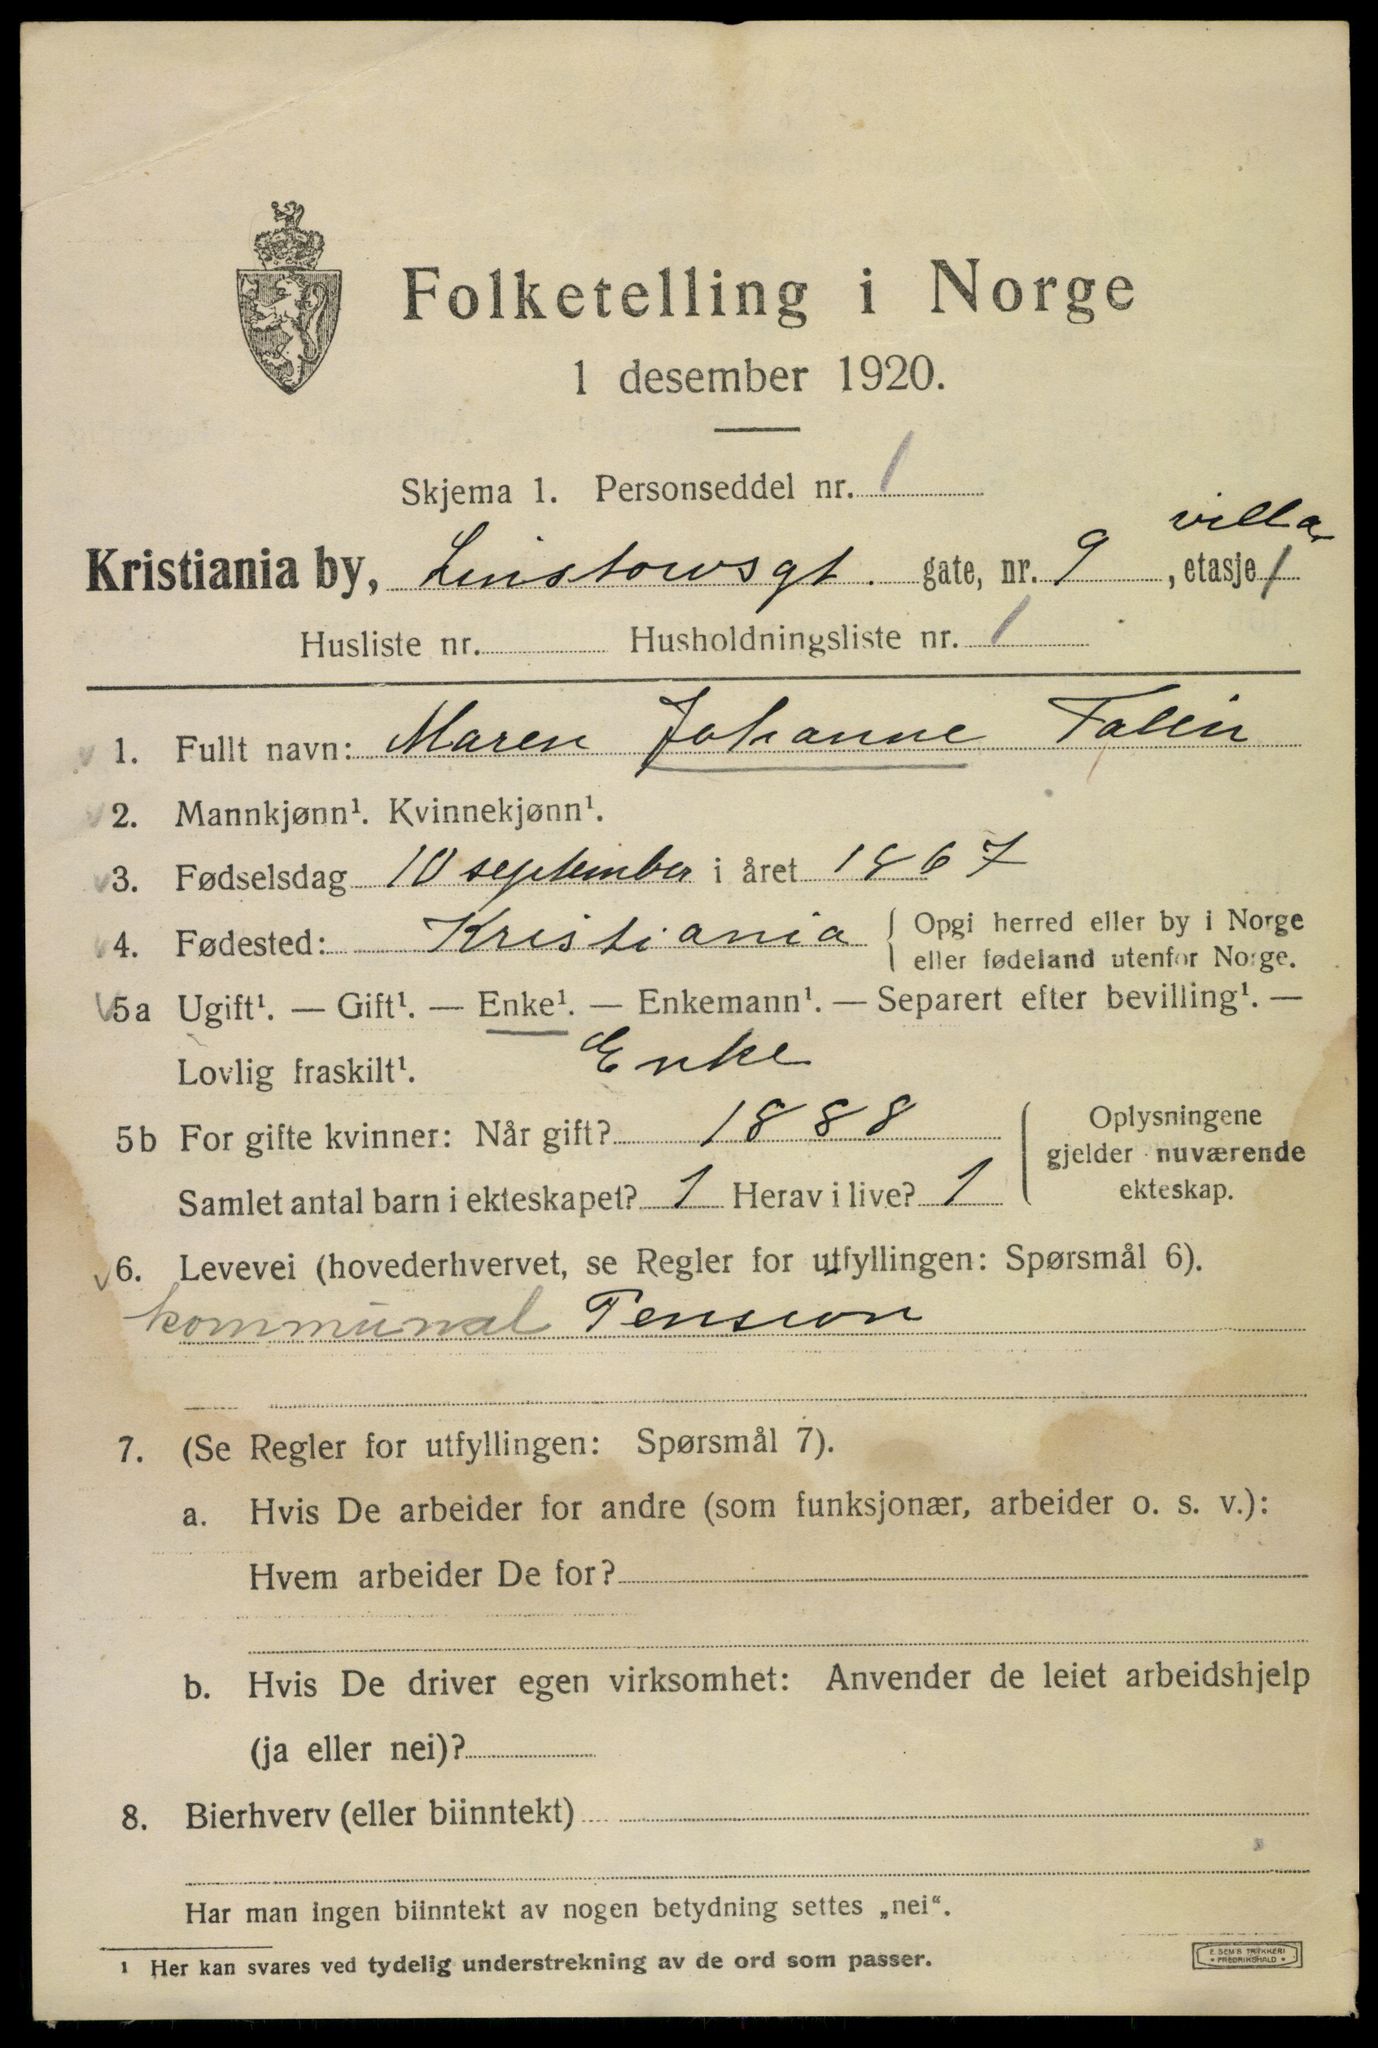 Folketelling i Norge
1 desember 1920.
Skjema 1. Personseddel nr. 1
villa
Kristiania by, Linstowsgt. gate, nr. 9, etasje 1
Husliste nr. Husholdningsliste nr. 1
1. Fullt navn: Maren Johanne
2. Mannkjønn¹. Kvinnekjønn¹.
3. Fødselsdag 10 september i året 1867
4. Fødested: Kristiania { Opgi herred eller by i Norge
eller fødeland utenfor Norge.
5a Ugift¹. — Gift¹. — Enke¹. — Enkemann¹. — Separert efter bevilling¹. —
Lovlig fraskilt¹. Enke
5b For gifte kvinner: Når gift? 1888
Samlet antal barn i ekteskapet? 1 Herav i live? 1
Oplysningene
gjelder nuværende
ekteskap.
6. Levevei (hovederhvervet, se Regler for utfyllingen: Spørsmål 6).
kommunal Pension
7. (Se Regler for utfyllingen: Spørsmål 7).
a. Hvis De arbeider for andre (som funksjonær, arbeider o. s. v.):
Hvem arbeider De for?
b. Hvis De driver egen virksomhet: Anvender de leiet arbeidshjelp
(ja eller nei)?
8. Bierhverv (eller biinntekt)
Har man ingen biinntekt av nogen betydning settes „nei“.
¹ Her kan svares ved tydelig understrekning av de ord som passer.
E. SEM'S TRYKKERI
• FREDRIKSHALD •